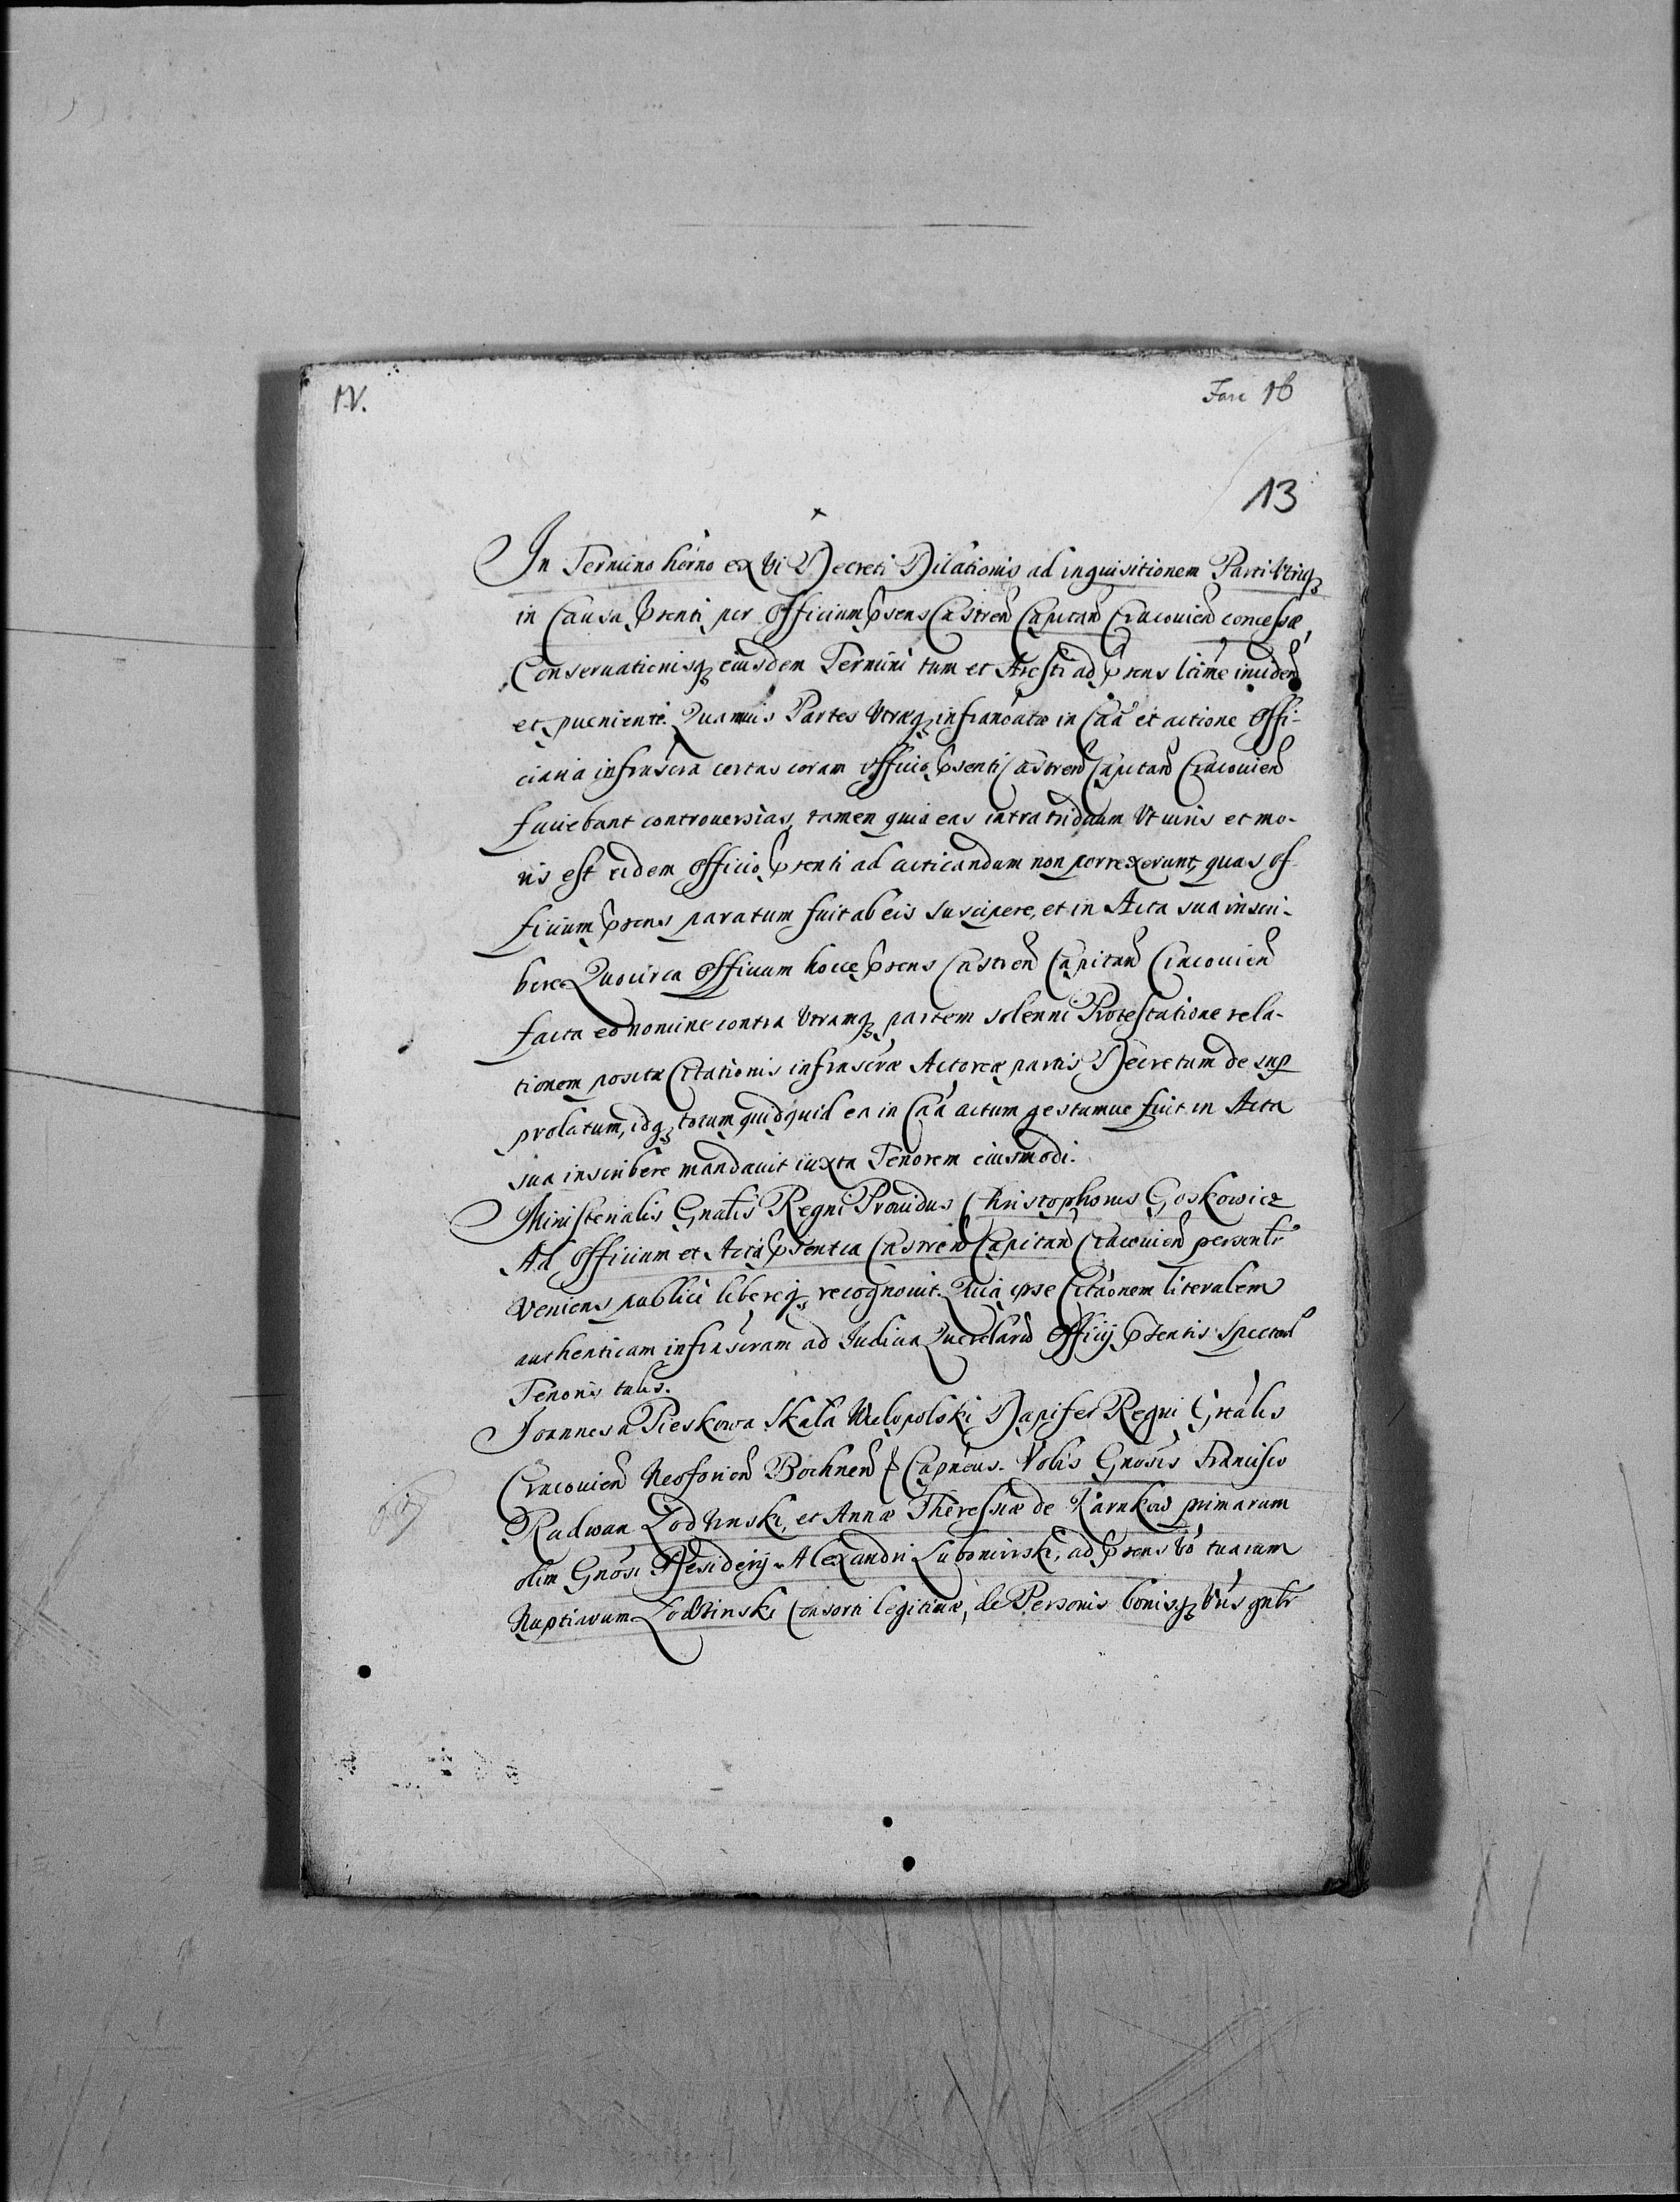 IV.
Fasc 16
13
In Termino horno ex Vi Decreti Dilationis ad inquisitionem Parti Vtriq3
in Causa prnti per Officium prens Castren Capitan Cracouien concessæ,
Conseruationisq3 eiusdem Termini tum et Aresti ad prens ltime inciden
et pueniente. Quamuis Partes Vtræq3 infranoatæ in Caa et actione Offi-
ciaria infrascra certas coram officio prsenti Castren Capitan Cracouien
faciebant controuersias, tamen quia eas intra triduum Vt iuris et mo-
ris est eidem Officio prsenti ad acticandum non porrexerunt, quas of-
ficium prens paratum fuit ab eis suscipere, et in Acta sua inscri-
bere Quocirca Officium hocce prsens Castren Capitan Cracouien
facta eo nomine contra Vtramq3 partem solenni Protestatione rela-
tionem positæ Citationis infrascræ Actoreæ partis, Decretum de sup
prolatum, idq3 totum quidquid ea in Caa actum gestumue fuit in Acta
sua inscribere mandauit iuxta Tenorem eiusmodi.
Ministerialis Gnalis Regni Prouidus Christophorus Goskowicz
Ad Officium et Acta prsentia Castren Capitan Cracouien personlr
veniens publice libereq3 recognouit. Quia ipse Citaonem literalem
authenticam infrascram ad Iudicia Querelaru Officij prsentis spectan
Tenoris talis.
Joannes a Pieskowa Skala Wielopolski Dapifer Regni Gnalis
Cracouien Neoforien Bochnen Capneus. Vobis Gnosis Francisco
Radwan Lodzinski, et Annæ Theressiæ de Karnkow primarum
olim Gnosi Desiderij Alexandri Lubomirski, ad prsens vo tuarum
Nuptiarum Lodzinski Consorti legitimæ, de Personis bonisq3 Vris gnlr